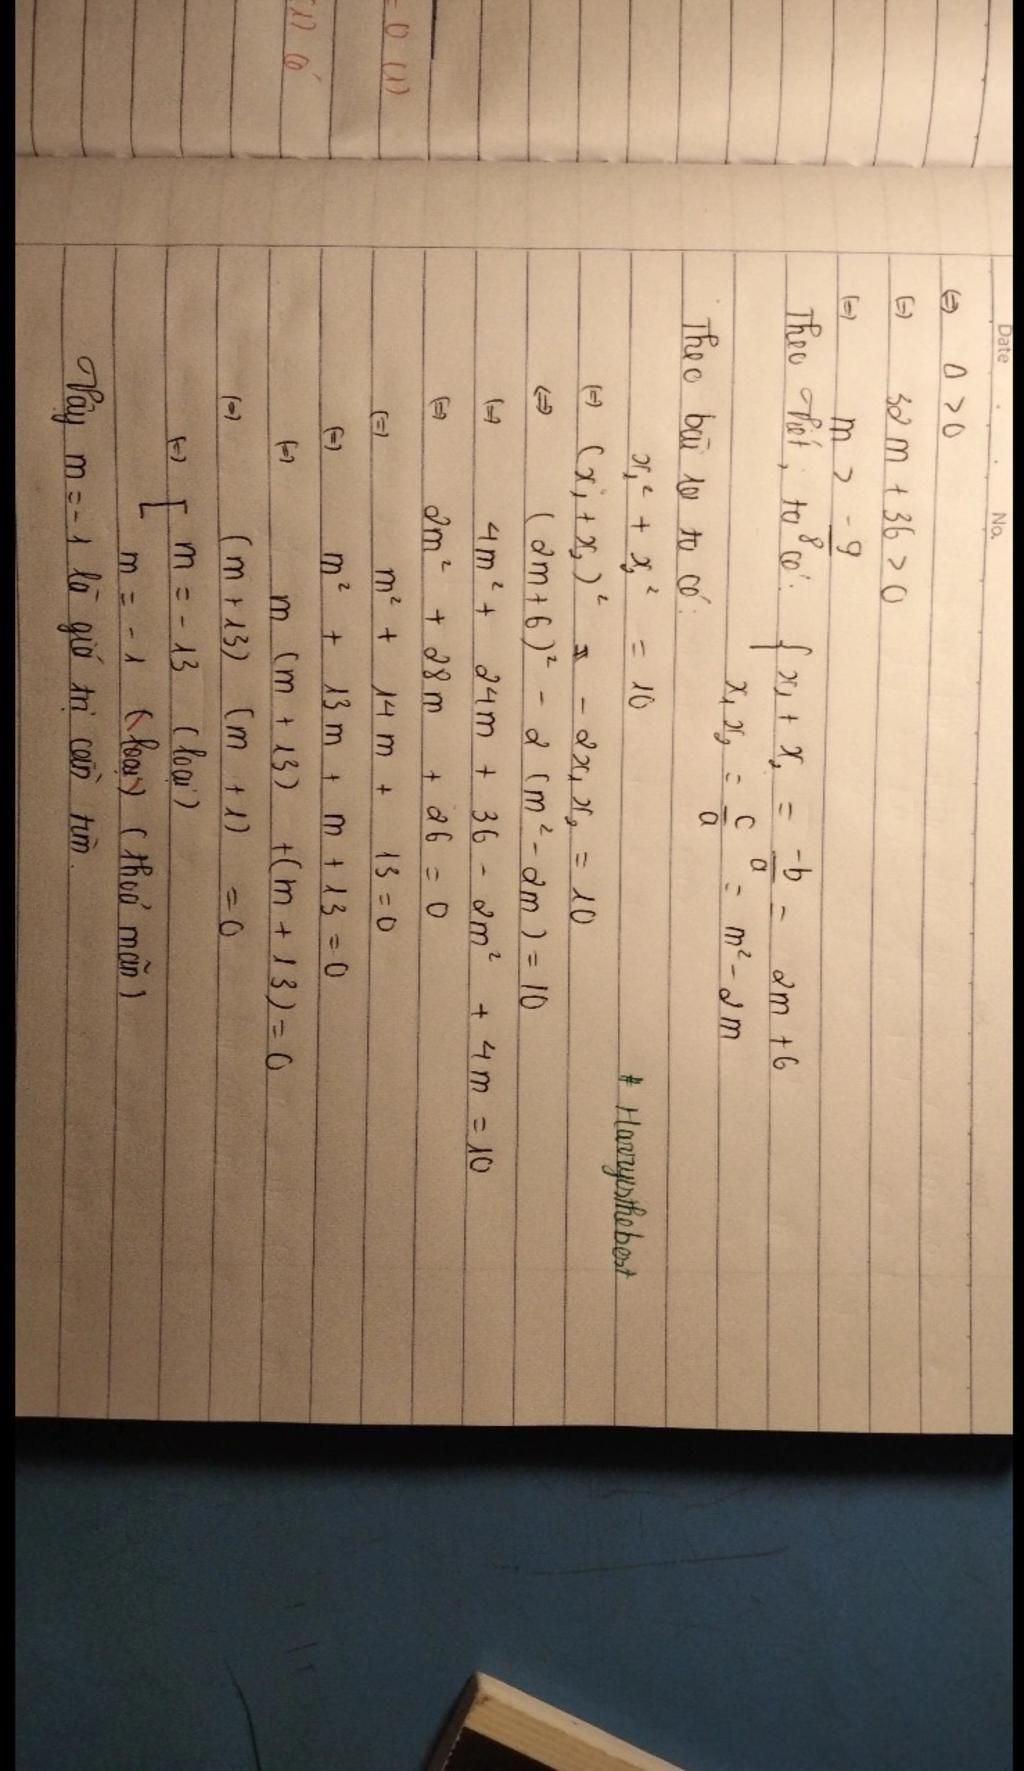 = 0 (1)
(1) có
Date
No.
(=) Δ > 0
(=) 32m + 36 > 0
(=) m > -9/8
Theo Viét, ta có: { x₁ + x₂ = -b/a = 2m + 6
x₁x₂ = c/a = m² - 2m
Theo bài ra ta có:
x₁² + x₂² = 10
# Harryisthebest
(=) (x₁ + x₂)² - 2x₁x₂ = 10
(=) (2m+6)² - 2(m² - 2m) = 10
(=) 4m² + 24m + 36 - 2m² + 4m = 10
(=) 2m² + 28m + 26 = 0
(=) m² + 14m + 13 = 0
(=) m² + 13m + m + 13 = 0
(=) m (m + 13) + (m + 13) = 0
(=) (m + 13) (m + 1) = 0
(=) [ m = -13 (loại)
m = -1 (loại) (thoả mãn)
Vậy m = -1 là giá trị cần tìm.